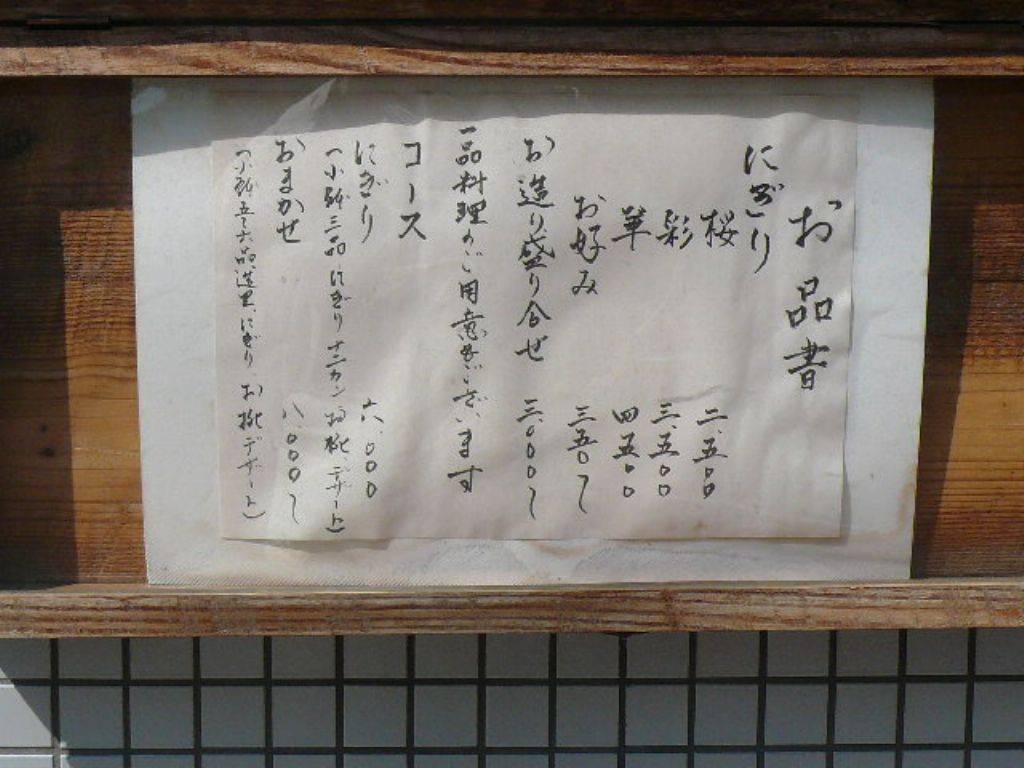 お品書
にぎり
桜 二、五〇〇
彩 三、五〇〇
華 四五〇〇
お好み 三五〇〜
お造り盛り合せ 三、〇〇〇〜
一品料理もご用意してございます
コース
にぎり 六、〇〇〇
(小鉢三品 にぎり 十一カン お椀、デザート)
おまかせ 八、〇〇〇〜
(小鉢五〜六品、造里、にぎり、お椀 デザート)